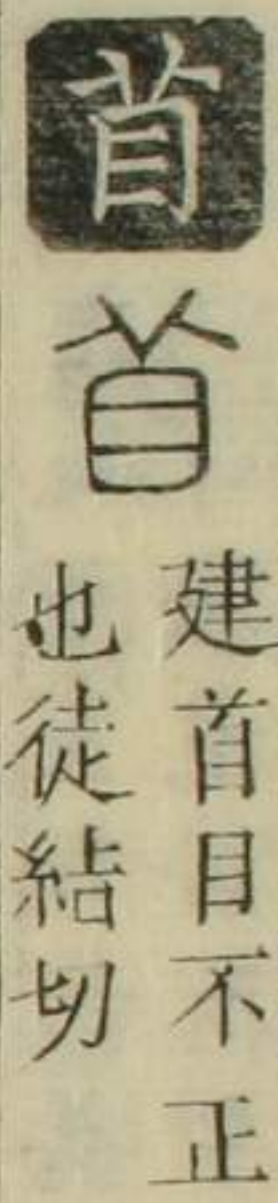 苜
苜
建首目不正
也徒結切